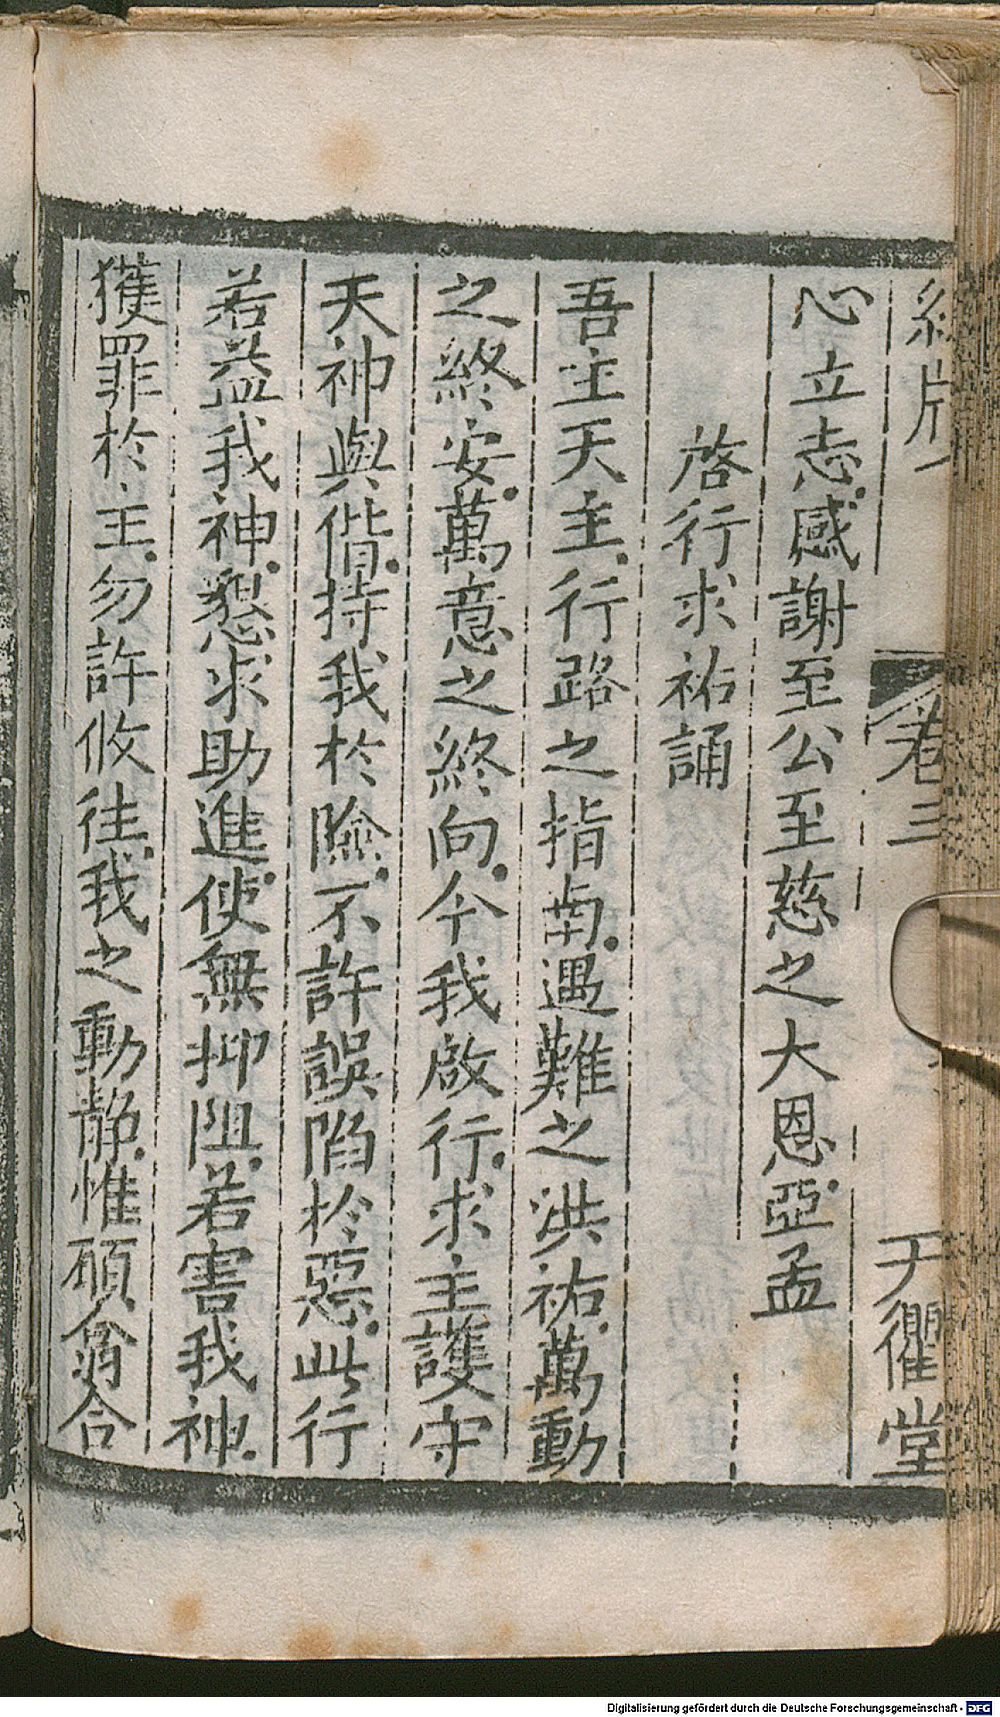 心立志。感謝至公至慈之大恩。亞孟
啓行求祐誦
吾主天主。行路之指南。遇難之洪祐。萬動
之終安。萬意之終向。今我啟行。求主護守
天神與偕。持我於險。不許誤陷於惡。此行
若益我神。懇求助進。使無抑阻。若害我神。
獲罪於主。勿許攸往。我之動静。惟碩翕合
卷三
于衢堂
Digitalisierung gefördert durch die Deutsche Forschungsgemeinschaft - DFG